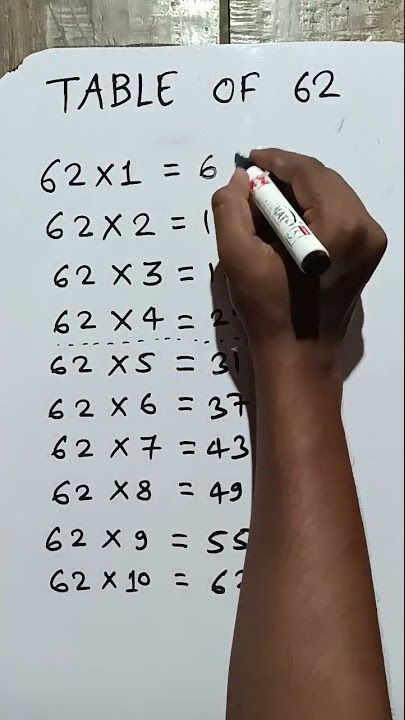 TABLE OF 62
62 X 1 = 6
62 X 2 = 1
62 X 3 = 1
62 X 4 = 2
62 X 5 = 31
62 X 6 = 37
62 X 7 = 43
62 X 8 = 49
62 X 9 = 55
62 X 10 = 62